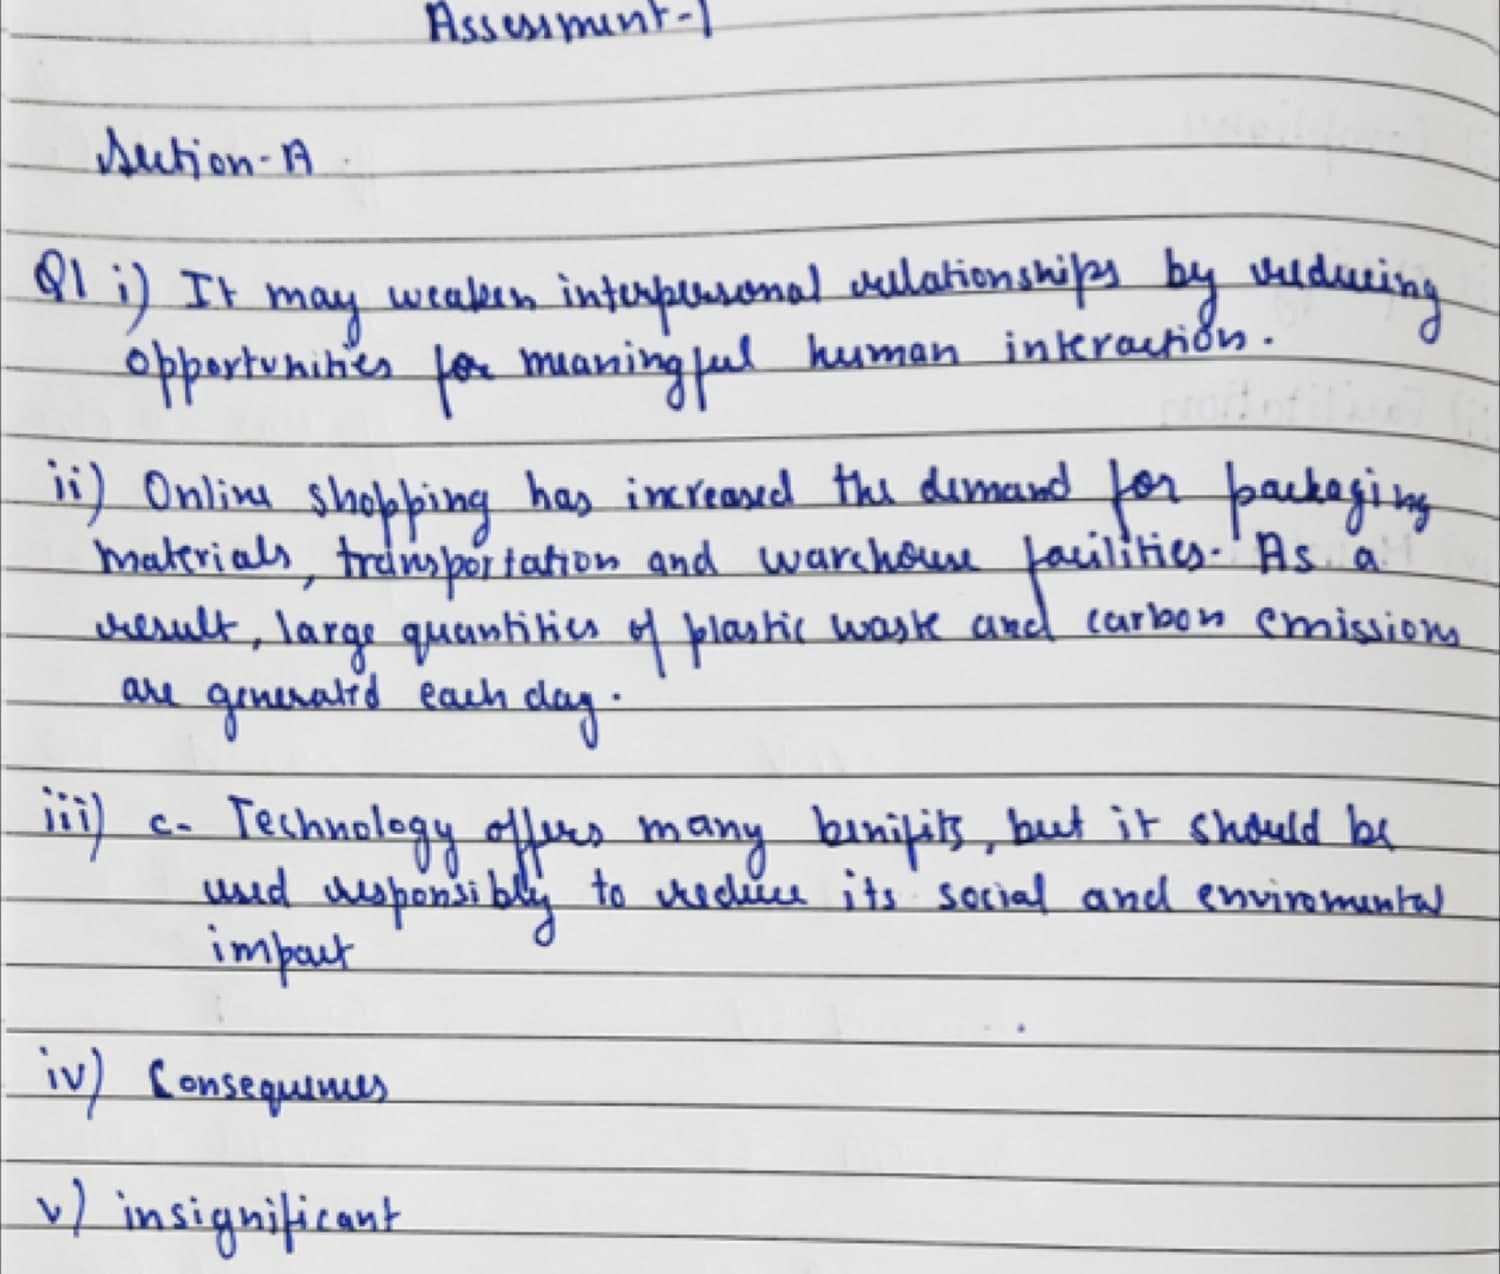 Assessment-1
Section-A
Q1 i) It may weaken interpersonal relationships by reducing
opportunities for meaningful human interaction.
ii) Online shopping has increased the demand for packaging
materials, transportation and warehouse facilities. As a
result, large quantities of plastic waste and carbon emissions
are generated each day.
iii) c. Technology offers many benifits, but it should be
used responsibly to reduce its social and enviromental
impact
iv) Consequences
v) insignificant